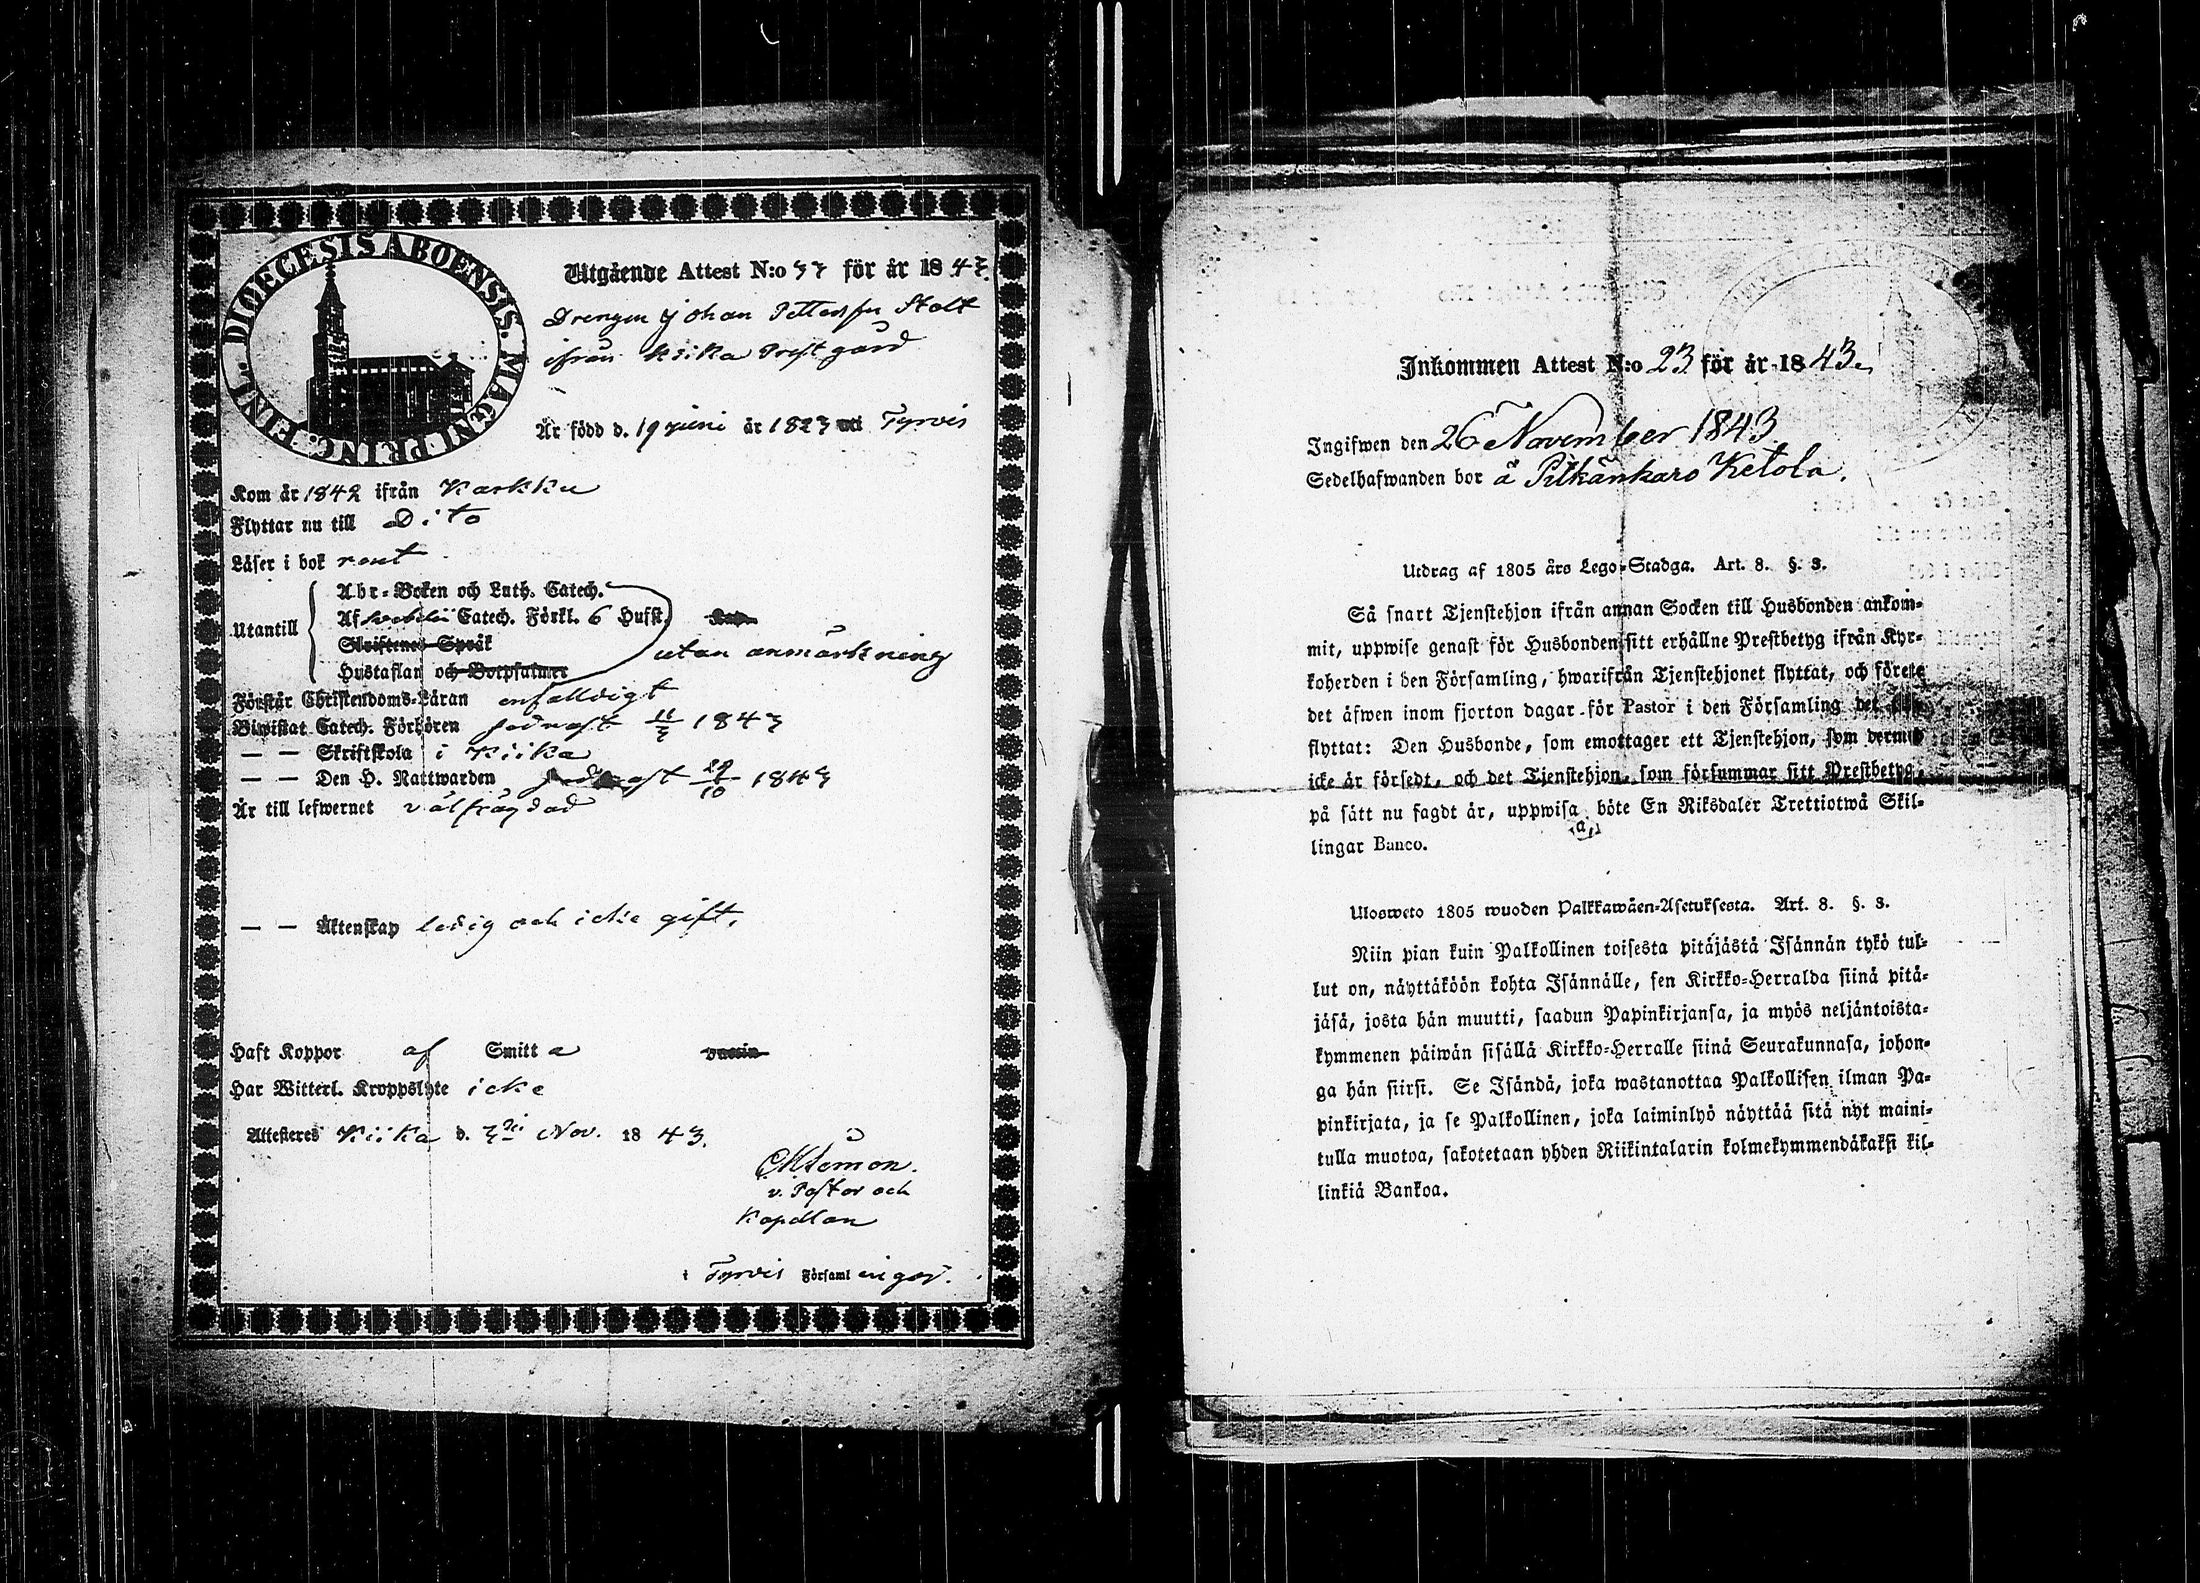 DIOECESIS ABOENSIS. MAGNI PRINC. FINL.
Utgående Attest N:o 37 för år 1843.
Drengen Johan Pettersson Stolt
ifrån Kiika Prestgård
Är född d. 19 juni år 1823 uti Tyrvis
Kom år 1842 ifrån Karkku
Flyttar nu till Dito
Läser i bok rent
Utantill
Abc-Boken och Luth. Catech.
Af Catech. Förkl. 6 Hufst.
Skriftenes Språk
Hustaflan och Botpsalmer
utan anmärkning
Förstår Christendoms-Läran enfalldigt
Biwistat Catech. Förhören sednast 11/3 1843
— — Skriftskola i Kiika
— — Den H. Nattwarden sednast 29/10 1843
Är till lefwernet välfrägdad
— — Äktenskap ledig och icke gift.
Haft Koppor af Smitta vaccin
Har Witterl. Kroppslyte icke
Attesteres Kiika d. 3 Nov. 1843.
v. Pastor och
Kapellan
i Tyrvis Församlingar.
Inkommen Attest N:o 23 för år 1843.
Ingifwen den 26 November 1843
Sedelhafwanden bor å Pitkänkaro Ketola.
Utdrag af 1805 års Lego-Stadga. Art. 8. §. 3.
Så snart Tjenstehjon ifrån annan Socken till Husbonden ankom-
mit, uppwise genast för Husbonden sitt erhållne Prestbetyg ifrån Kyr-
koherden i den Församling, hwarifrån Tjenstehjonet flyttat, och förete
det äfwen inom fjorton dagar för Pastor i den Församling det
flyttat: Den Husbonde, som emottager ett Tjenstehjon, som dermed
icke är försedt, och det Tjenstehjon, som försummar sitt Prestbetyg,
på sätt nu sagdt är, uppwisa, böte En Riksdaler Trettiotwå Skil-
lingar Banco.
Ulosweto 1805 wuoden Palkkawäen-Asetuksesta. Art. 8. §. 3.
Niin pian kuin Palkollinen toisesta pitäjästä Isännän tykö tul-
lut on, näyttäköön kohta Isännälle, sen Kirkko-Herralda siinä pitä-
jäsä, josta hän muutti, saadun Papinkirjansa, ja myös neljäntoista-
kymmenen päiwän sisällä Kirkko-Herralle siinä Seurakunnasa, johon-
ga hän siirsi. Se Isändä, joka wastanottaa Palkollisen ilman Pa-
pinkirjata, ja se Palkollinen, joka laiminlyö näyttää sitä nyt maini-
tulla muotoa, sakotetaan yhden Riikintalarin kolmekymmendäkaksi kil-
linkiä Bankoa.